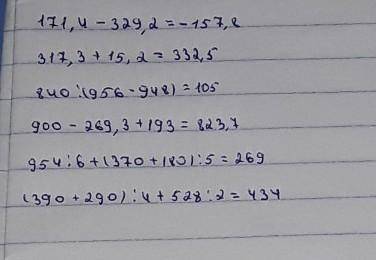 171,4-329,2=-157,8
317,3+15,2=332,5
840:(956-948)=105
900-269,3+193=823,7
954:6+(370+180):5=269
(390+290):4+528:2=434